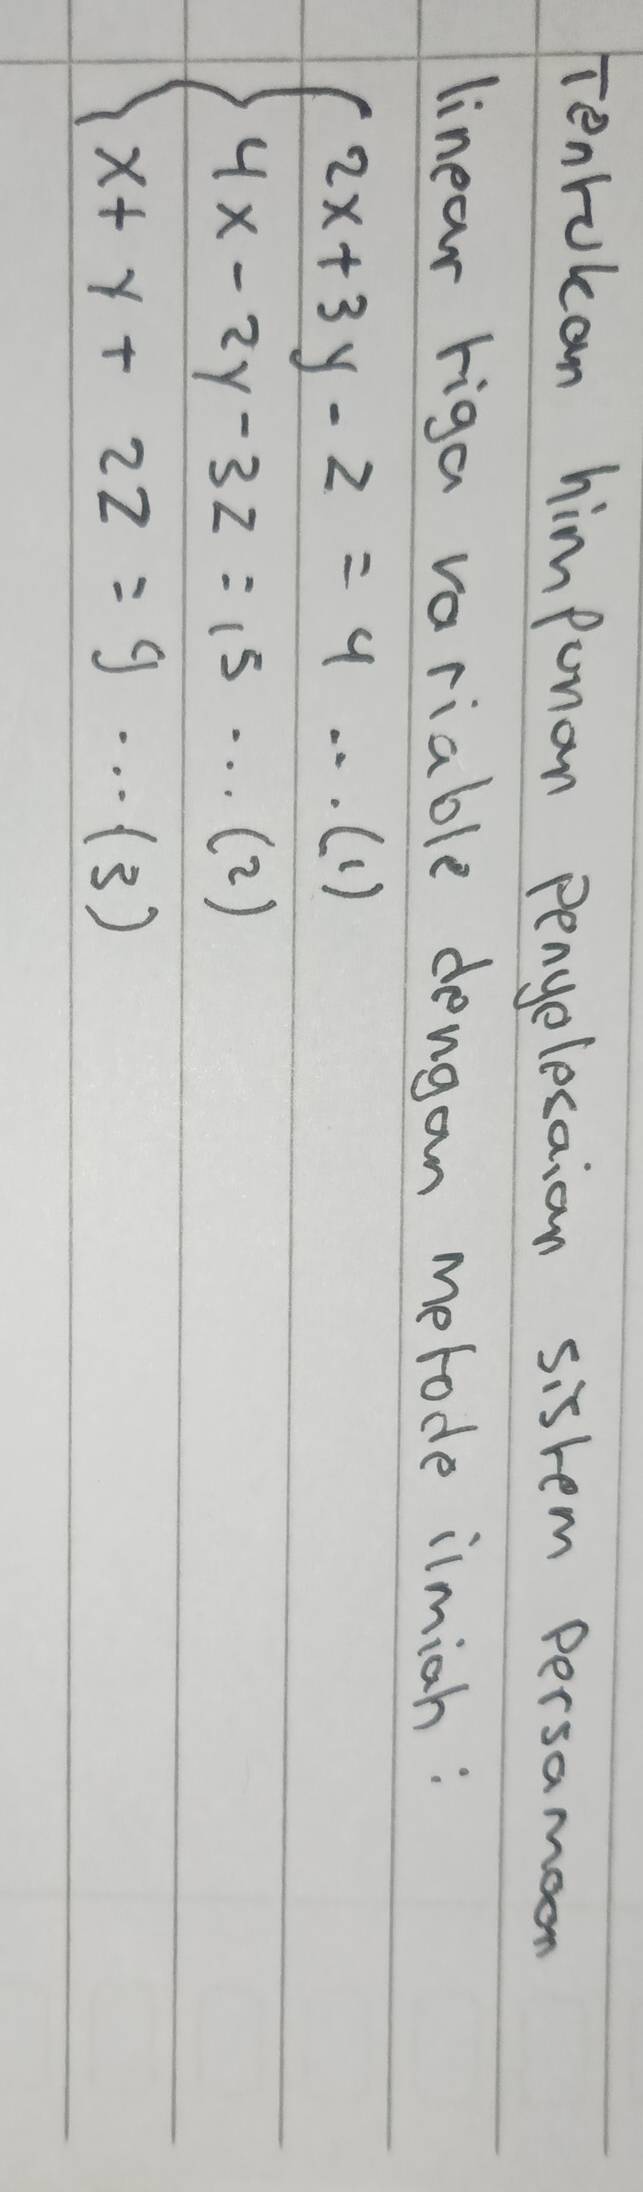 Tentukan himpunan penyelesaian sistem persamaan
linear tiga variable dengan metode ilmiah :
2x + 3y - z = 4 ... (1)
4x - 2y - 3z = 15 ... (2)
x + y + 2z = 9 ... (3)